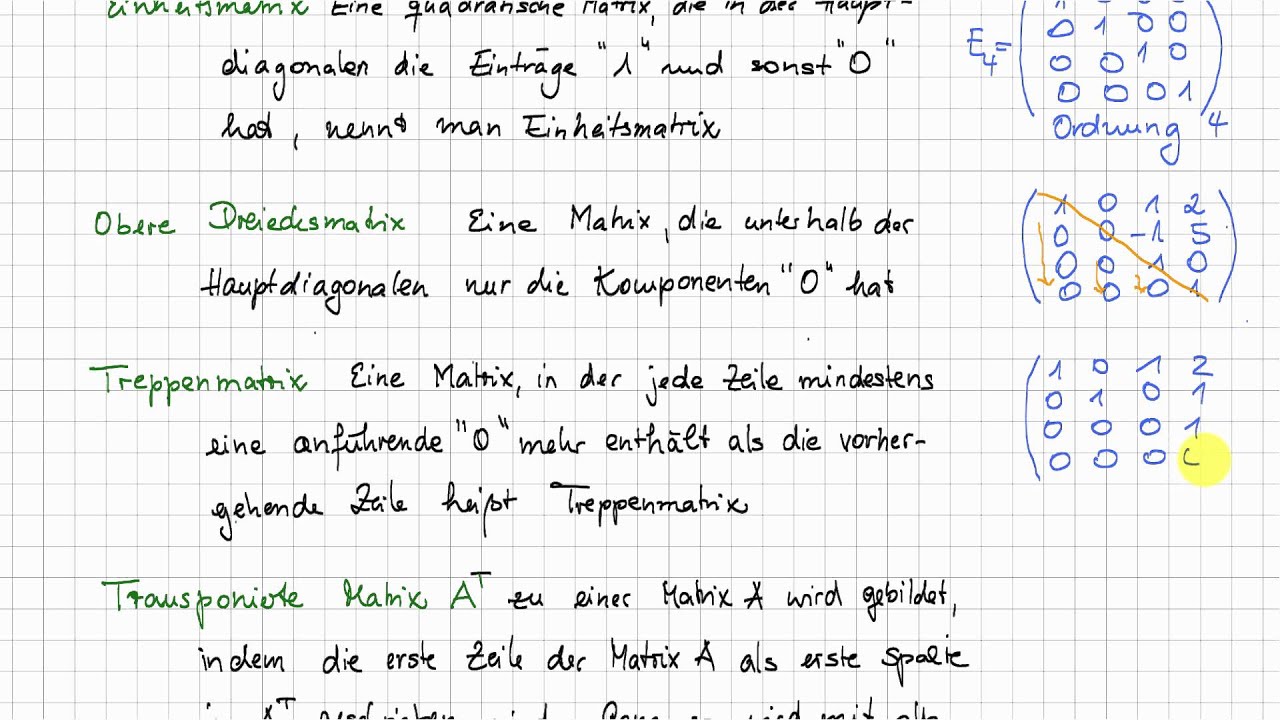 Einheitsmatrix Eine quadratische Matrix, die in der Haupt-
diagonalen die Einträge "1" und sonst "0"
hat, nennt man Einheitsmatrix
E₄=
1 0 0 0
0 1 0 0
0 0 1 0
0 0 0 1
Ordnung 4
Obere Dreiecksmatrix Eine Matrix, die unterhalb der
Hauptdiagonalen nur die Komponenten "0" hat
1 0 1 2
0 0 -1 5
0 0 1 0
0 0 0 1
Treppenmatrix Eine Matrix, in der jede Zeile mindestens
eine anführende "0" mehr enthält als die vorher-
gehende Zeile heißt Treppenmatrix
1 0 1 2
0 1 0 1
0 0 0 1
0 0 0
Transponierte Matrix Aᵀ zu einer Matrix A wird gebildet,
indem die erste Zeile der Matrix A als erste Spalte